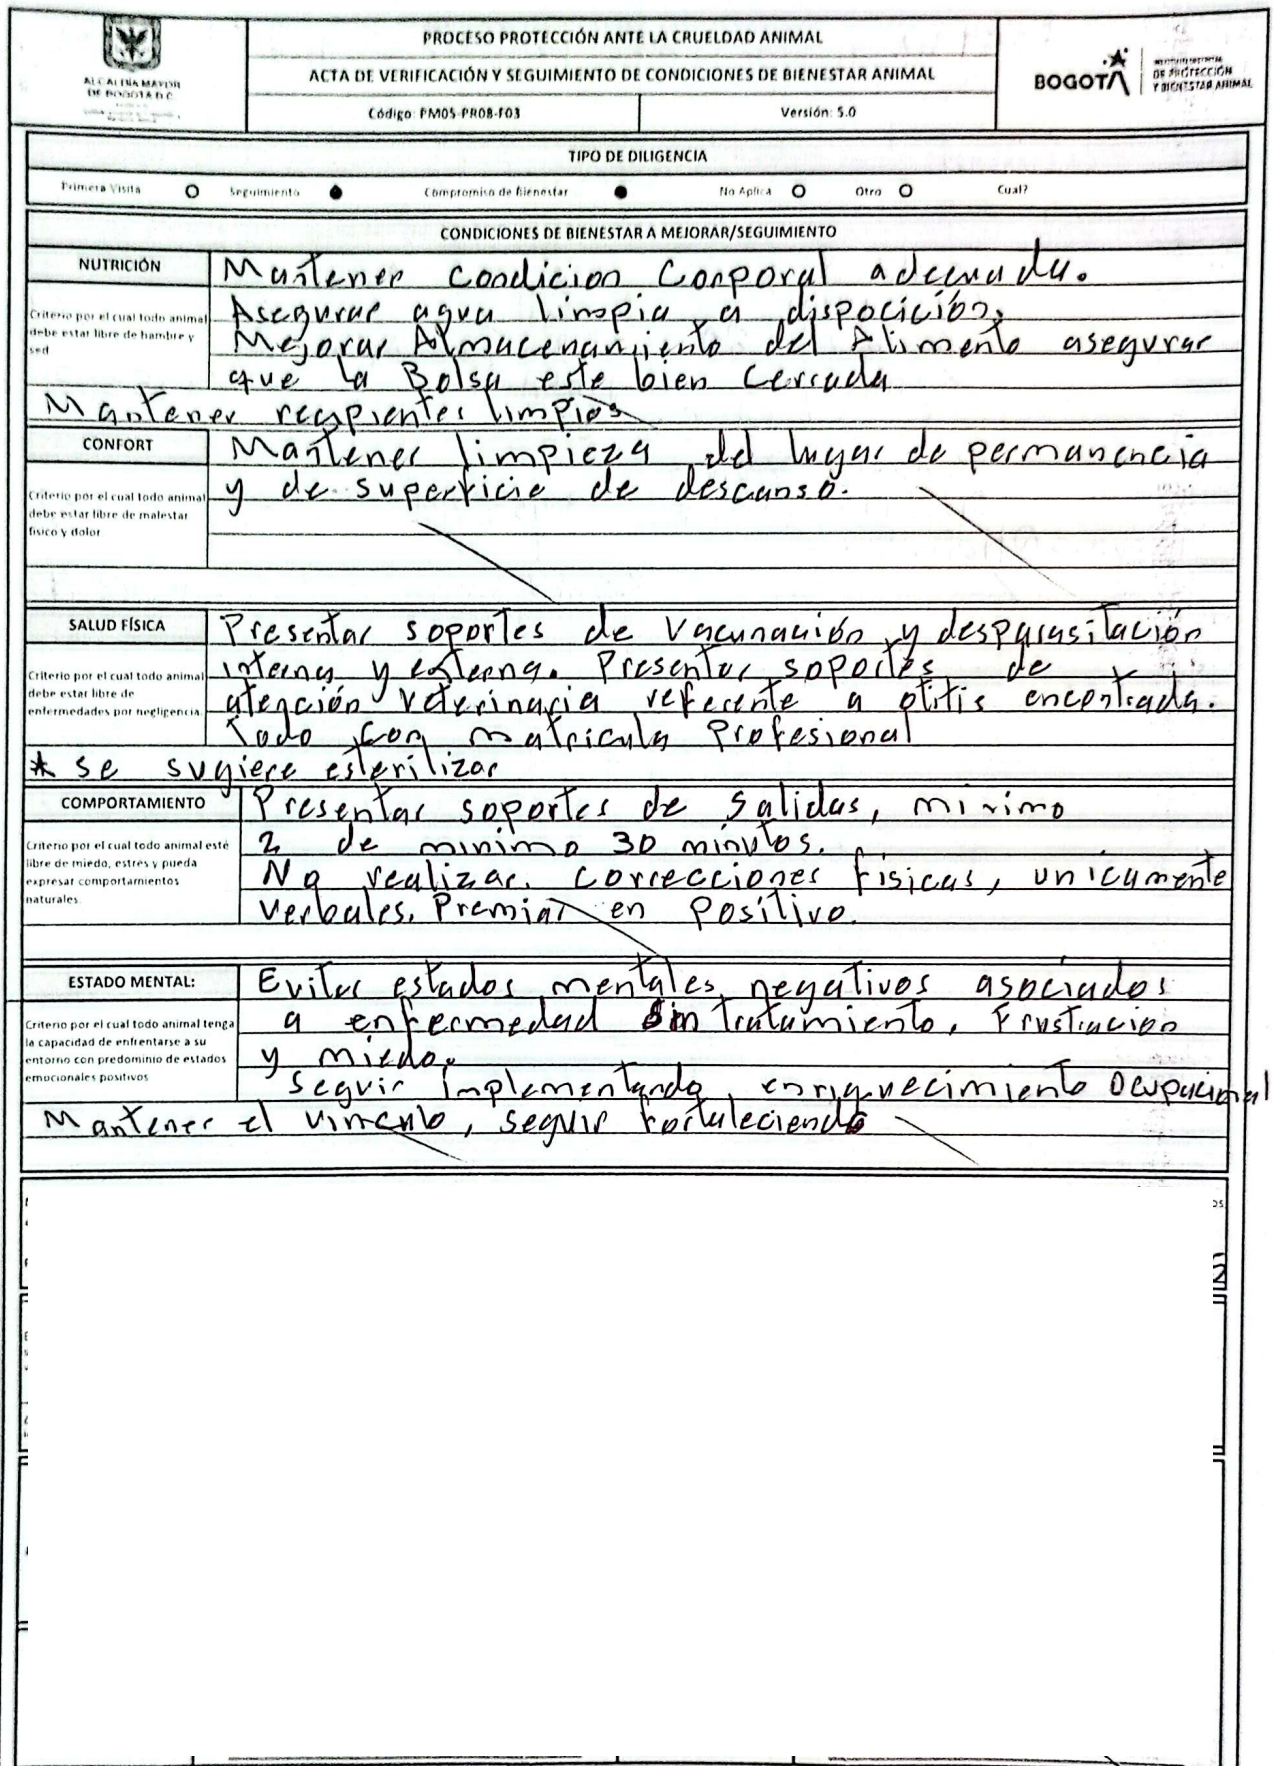 PROCESO PROTECCIÓN ANTE LA CRUELDAD ANIMAL
ACTA DE VERIFICACIÓN Y SEGUIMIENTO DE CONDICIONES DE BIENESTAR ANIMAL
Código: PM05-PR08-F03 Versión: 5.0
ALCALDÍA MAYOR
DE BOGOTÁ D.C.
BOGOTÁ
DE PROTECCIÓN
Y BIENESTAR ANIMAL
TIPO DE DILIGENCIA
Primera Visita Seguimiento Compromiso de Bienestar No Aplica Otro Cual?
CONDICIONES DE BIENESTAR A MEJORAR/SEGUIMIENTO
NUTRICIÓN
Criterio por el cual todo animal
debe estar libre de hambre y
sed
Mantener condicion Corporal adecuada.
Asegurar agua limpia a dispocición.
Mejorar Almacenamiento del Alimento asegurar
que la Bolsa este bien cerrada
Mantener recipientes limpios
CONFORT
Criterio por el cual todo animal
debe estar libre de malestar
físico y dolor
Mantener limpieza del lugar de permanencia
y de superficie de descanso.
SALUD FÍSICA
Criterio por el cual todo animal
debe estar libre de
enfermedades por negligencia.
Presentar soportes de Vacunación y desparasitación
interna y externa. Presentar soportes de
atención veterinaria referente a otitis encontrada.
Todo con matricula Profesional
* se sugiere esterilizar
COMPORTAMIENTO
Criterio por el cual todo animal esté
libre de miedo, estrés y pueda
expresar comportamientos
naturales.
Presentar soportes de Salidas, minimo
2 de minimo 30 minutos.
No realizar correcciones físicas, unicamente
verbales. Premiar en Positivo.
ESTADO MENTAL:
Criterio por el cual todo animal tenga
la capacidad de enfrentarse a su
entorno con predominio de estados
emocionales positivos
Evitar estados mentales negativos asociados
a enfermedad sin tratamiento, Frustracion
y miedo.
Seguir implementando enriquecimiento Ocupacional
Mantener el vinculo, seguir fortaleciendo